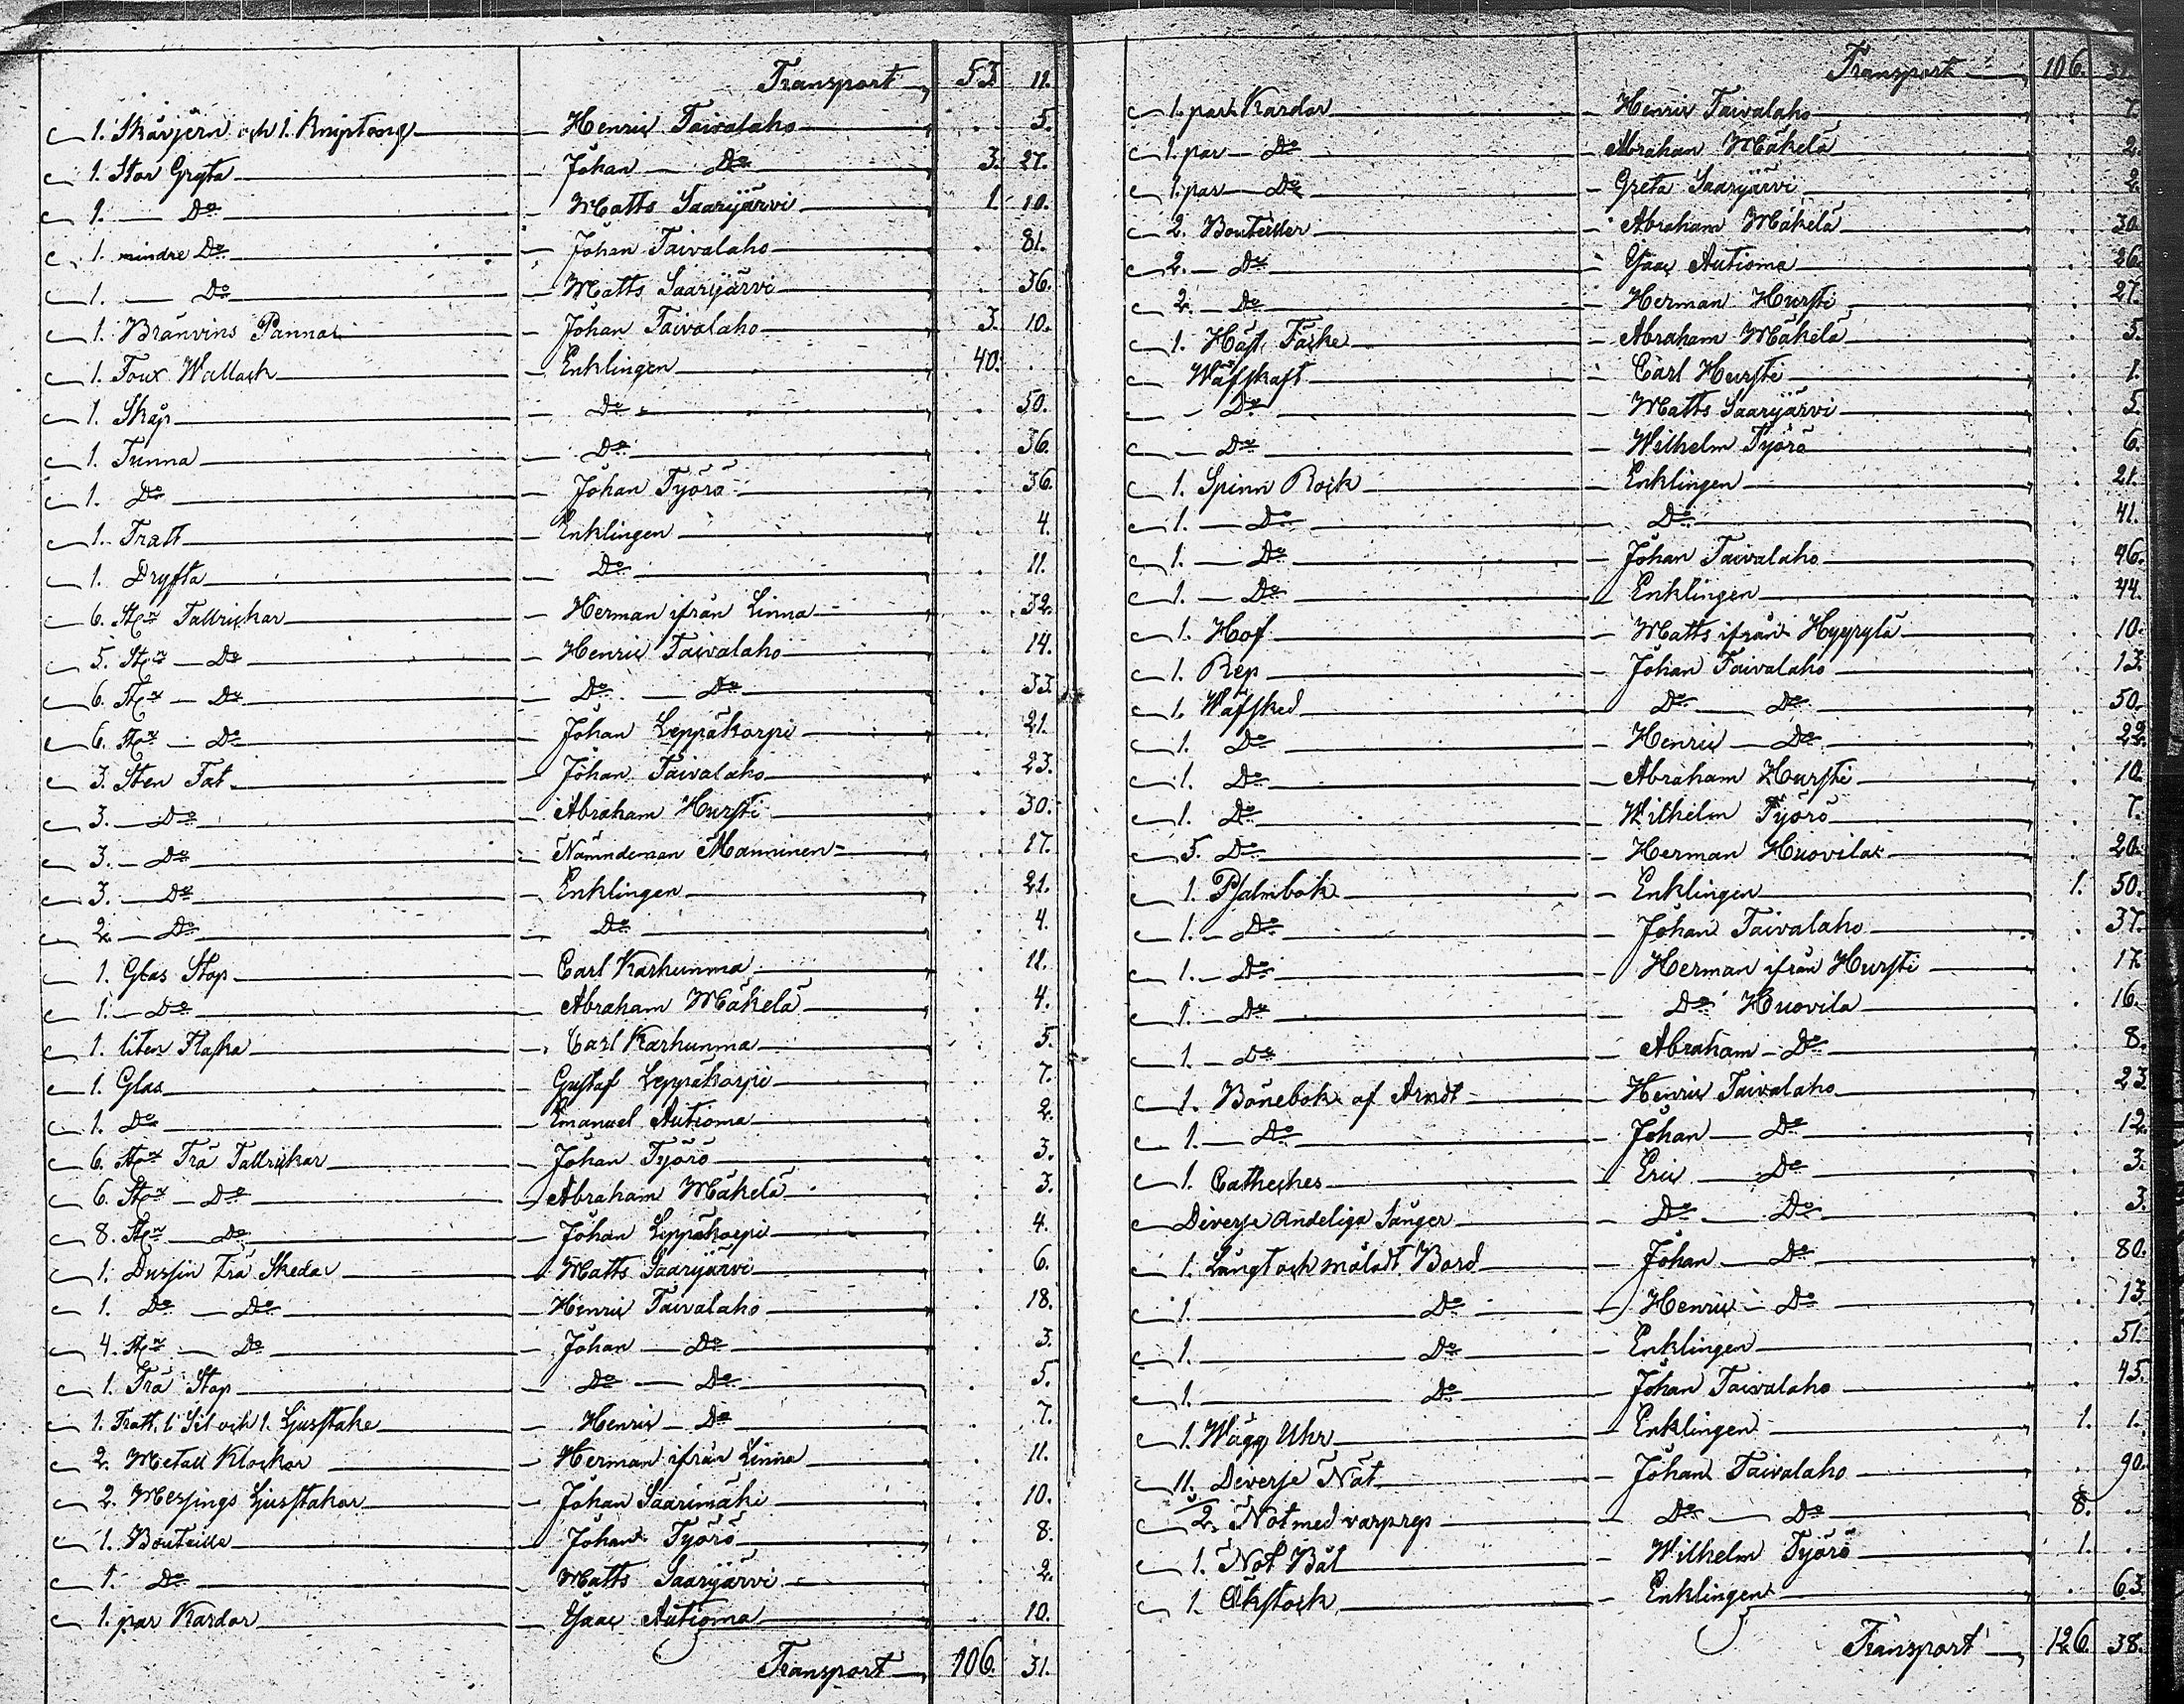 Transport 53. 11.
1. Skårjern och 1. Kniptong Henric Taivalaho . 5.
1. Stor Gryta Johan Do 3. 27.
1. Do Matts Saarijärvi 1. 10.
1. mindre Do Johan Taivalaho . 81.
1. Do Matts Saarijärvi . 36.
1. Bränvins Panna Johan Taivalaho 3. 10.
1. Foux Wallack Enklingen 40. .
1. Skåp Do . 50.
1. Tunna Do . 36.
1. Do Johan Työrö . 36.
1. Tratt Enklingen . 4.
1. Dryfta Do . 11.
6. Stn Tallrickar Herman ifrån Linna . 32.
5. Stn Do Henric Taivalaho . 14.
6. Stn Do Do Do . 33.
6. Stn Do Johan Leppäkorpi . 21.
3. Sten Fat Johan Taivalaho . 23.
3. Do Abraham Hursti . 30.
3. Do Nämndeman Manninen . 17.
3. Do Enklingen . 21.
2. Do Do . 4.
1. Glas Stop Carl Karhunma . 11.
1. Do Abraham Mäkelä . 4.
1. liten Flaska Carl Karhunma . 5.
1. Glas Gustaf Leppäkorpi . 7.
1. Do Emanuel Autioma . 2.
6. Stn Trä Tallrickar Johan Työrö . 3.
6. Stn Do Abraham Mäkelä . 3.
8. Stn Do Johan Leppäkorpi . 4.
1. Dussin Trä Skedar Matts Saarijärvi . 6.
1. Do Do Henric Taivalaho . 18.
4. Stn Do Johan Do . 3.
1. Trä Stop Do Do . 5.
1. Tratt, 1. Sil och 1. Ljusstake Henric Do . 7.
2. Metall Klockor Herman ifrån Linna . 11.
2. Messings Ljusstakar Johan Saarimäki . 10.
1. Bouteille Johan Työrö . 8.
1. Do Matts Saarijärvi . 2.
1. par Kardor Isaac Autioma . 10.
Transport 106. 31.
Transport 106. 31.
1. par Kardor Henric Taivalaho . 7.
1. par Do Abraham Mäkelä . 2.
1. par Do Greta Saarijärvi . 2.
2. Bouteiller Abraham Mäkelä . 30.
2. Do Isaac Autioma . 26.
2. Do Herman Hursti . 27.
1. Häst Täcke Abraham Mäkelä . 5.
Wäfskaft Carl Hursti . 1.
Do Matts Saarijärvi . 5.
Do Wilhelm Työrö . 6.
1. Spinn Rock Enklingen . 21.
1. Do Do . 41.
1. Do Johan Taivalaho . 46.
1. Do Enklingen . 44.
1. Hof Matts ifrån Hyyrylä . 10.
1. Rep Johan Taivalaho . 13.
1. Wäfsked Do Do . 50.
1. Do Henric Do . 22.
1. Do Abraham Hursti . 10.
1. Do Wilhelm Työrö . 7.
5. Do Herman Huovila . 20.
1. Psalmbok Enklingen 1. 50.
1. Do Johan Taivalaho . 37.
1. Do Herman ifrån Hursti . 17.
1. Do Do Huovila . 16.
1. Do Abraham Do . 8.
1. Bönebok af Arndt Henric Taivalaho . 23.
1. Do Johan Do . 12.
1. Catheches Eric Do . 3.
Diverse andeliga Sånger Do Do . 3.
1. Långt och måladt Bord Johan Do . 80.
1. Do Henric Do . 13.
1. Do Enklingen . 51.
1. Do Johan Taivalaho . 45.
1. Wägg Uhr Enklingen 1. 1.
11. Deverse Nät Johan Taivalaho . 90.
1/2. Not med varprep Do Do 8. .
1. Not Båt Wilhelm Työrö 1. .
1. Ökstock Enklingen . 63.
Transport 126. 38.